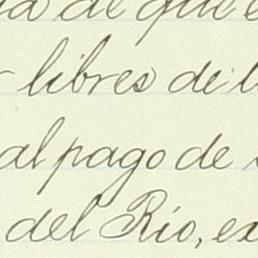 de que e
libres de
al pago de
del Río, ex